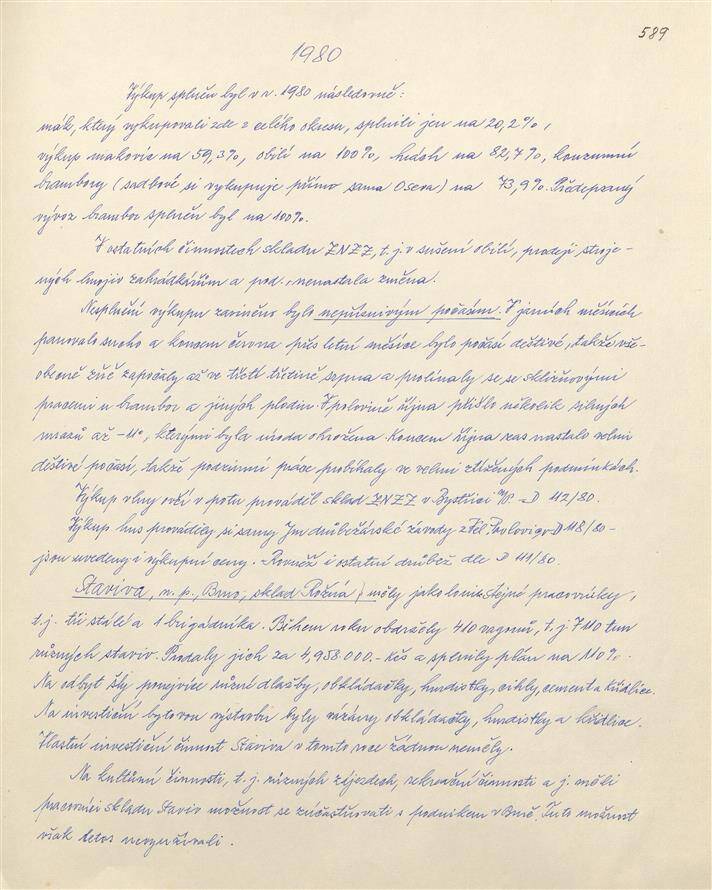 589
1980
Výkup splněn byl v r. 1980 následovně:
mák, který vykupovali zde z celého okresu, splnili jen na 20,2%,
výkup makovic na 59,3%, obilí na 100%, hrách na 82,7%, konzumní
brambory (sadbové si vykupuje přímo sama Oseva) na 73,9%. Předepsaný
vývoz brambor splněn byl na 100%.
V ostatních činnostech skladu ZNZZ, t.j. v sušení obilí, prodeji stroje-
ných hnojiv zahrádkářům a pod., nenastala změna.
Nesplnění výkupu zaviněno bylo nepříznivým počasím. V jarních měsících
panovalo sucho a koncem června přes letní měsíce bylo počasí deštivé, takže vše-
obecně žně započaly až ve třetí třetině srpna a prolínaly se se sklizňovými
pracemi u brambor a jiných plodin. V polovině října přišlo několik silných
mrazů až -11°, kterými byla úroda ohrožena. Koncem října zas nastalo velmi
deštivé počasí, takže podzimní práce probíhaly ve velmi ztížených podmínkách.
Výkup vlny ovčí v potu prováděl sklad ZNZZ v Bystřici n/P. - D 112/80.
Výkup hus prováděly si samy Jm drůbežářské závody z Vel. D 118/80 -
jsou uvedeny i výkupní ceny. Rovněž i ostatní drůbež dle D 111/80.
Staviva, n. p., Brno, sklad Rožná, měly jako loni stejné pracovníky,
t.j. tři stálé a 1 brigádníka. Během roku obdržely 410 vagonů, t.j. 7110 tun
různých staviv. Prodaly jich za 4,958.000.- Kčs a splnily plán na 110%.
Na odbyt šly ponejvíce různé dlažby, obkládačky, hurdistky, cihly, cement a křidlice.
Na investiční bytovou výstavbu byly vázány obkládačky, hurdistky a křidlice.
Vlastní investiční činnost Staviva v tomto roce žádnou neměly.
Na kulturní činnosti, t.j. různých zájezdech, rekreační činnosti a j. měli
pracovníci skladu Staviv možnost se zúčastňovati s podnikem v Brně. Tuto možnost
však letos nevyužívali.